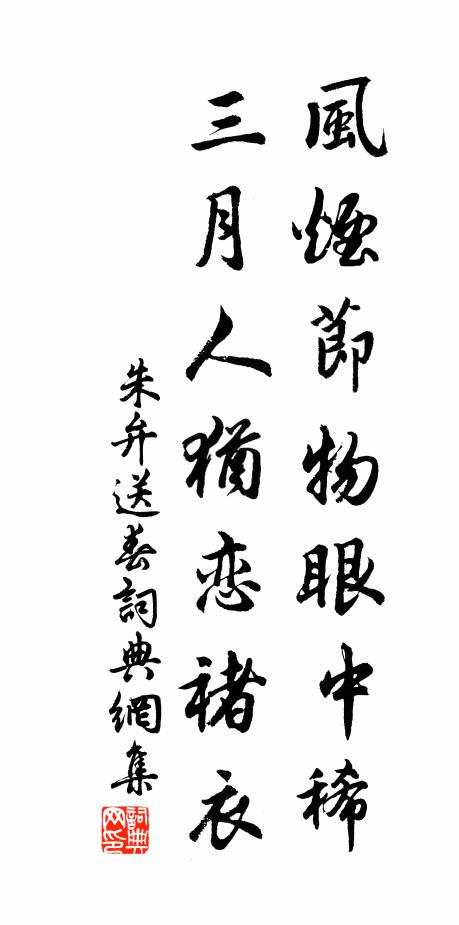 風煙節物眼中稀
三月人猶恋褚衣
朱弁送春詞典網集
詞典网印